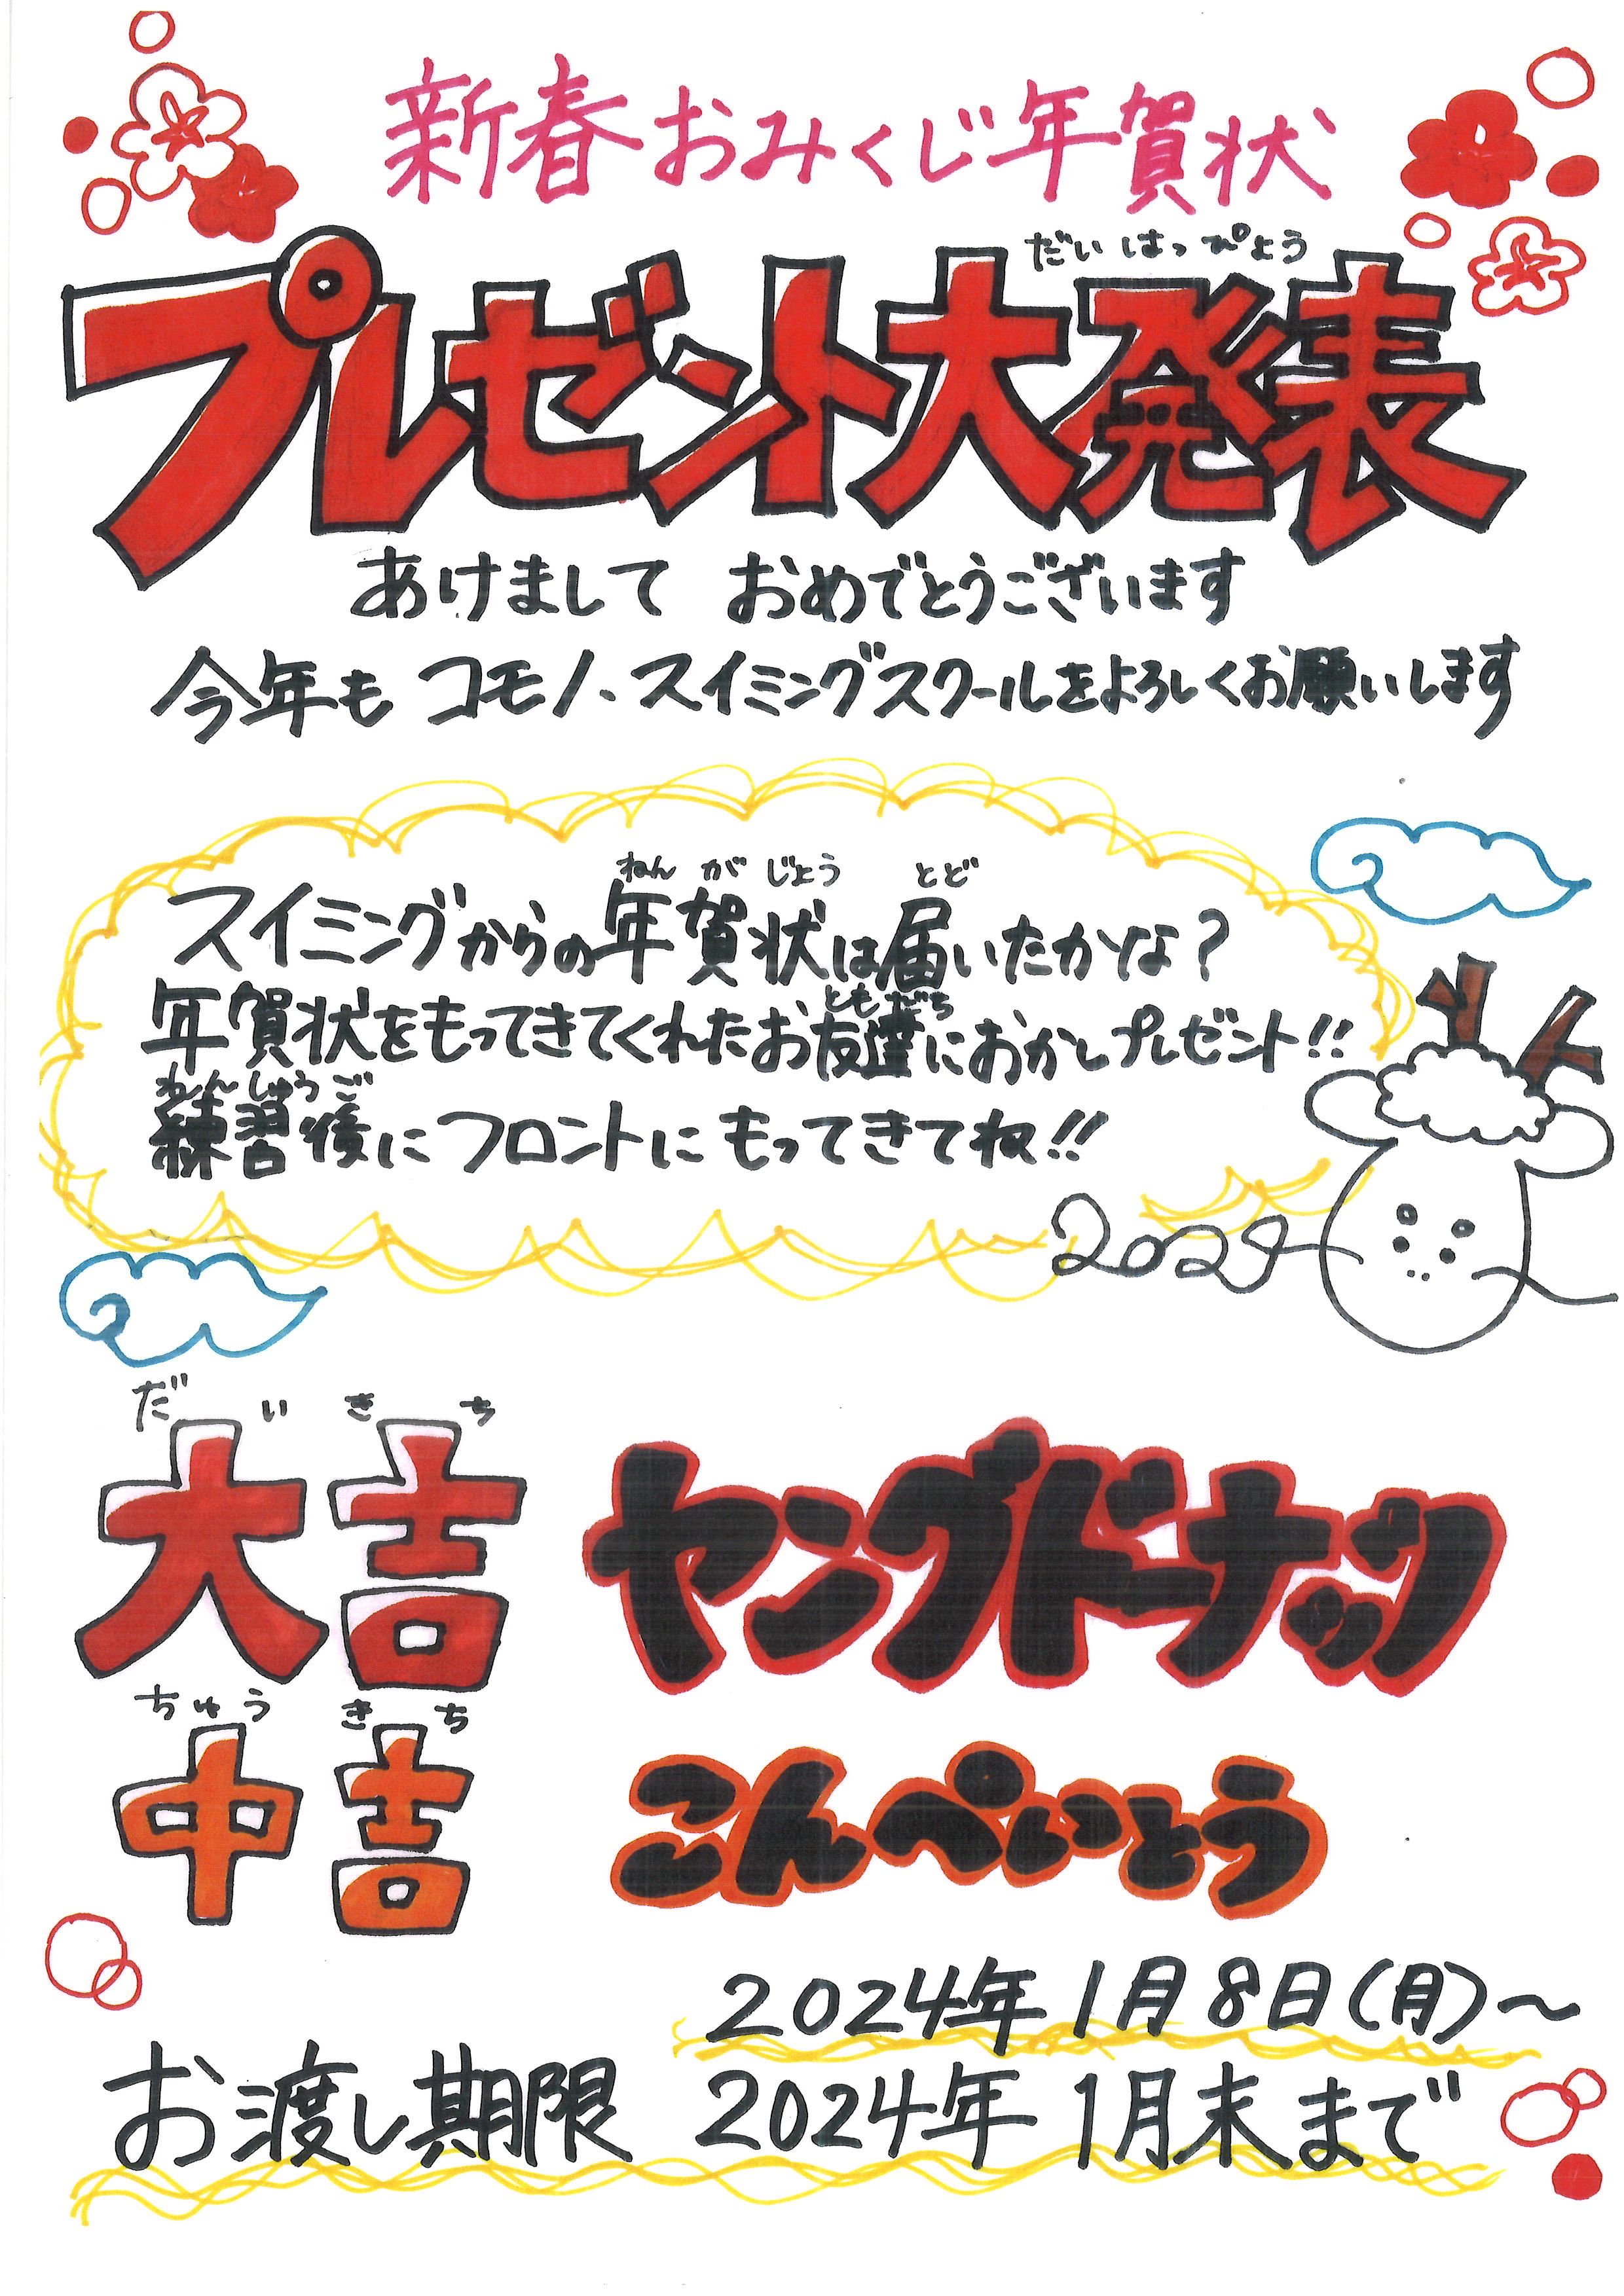 新春おみくじ年賀状
だいはっぴょう
プレゼント大発表
あけまして おめでとうございます
今年も コモノ・スイミングスクールをよろしくお願いします
ねんがじょう とど
スイミングからの年賀状は届いたかな?
ともだち
年賀状をもってきてくれたお友達におかしプレゼント!!
れんしゅうご
練習後にフロントにもってきてね!!
2024
だいきち
大吉 ヤングドーナツ
ちゅうきち
中吉 こんぺいとう
2024年1月8日(月)~
お渡し期限 2024年1月末まで